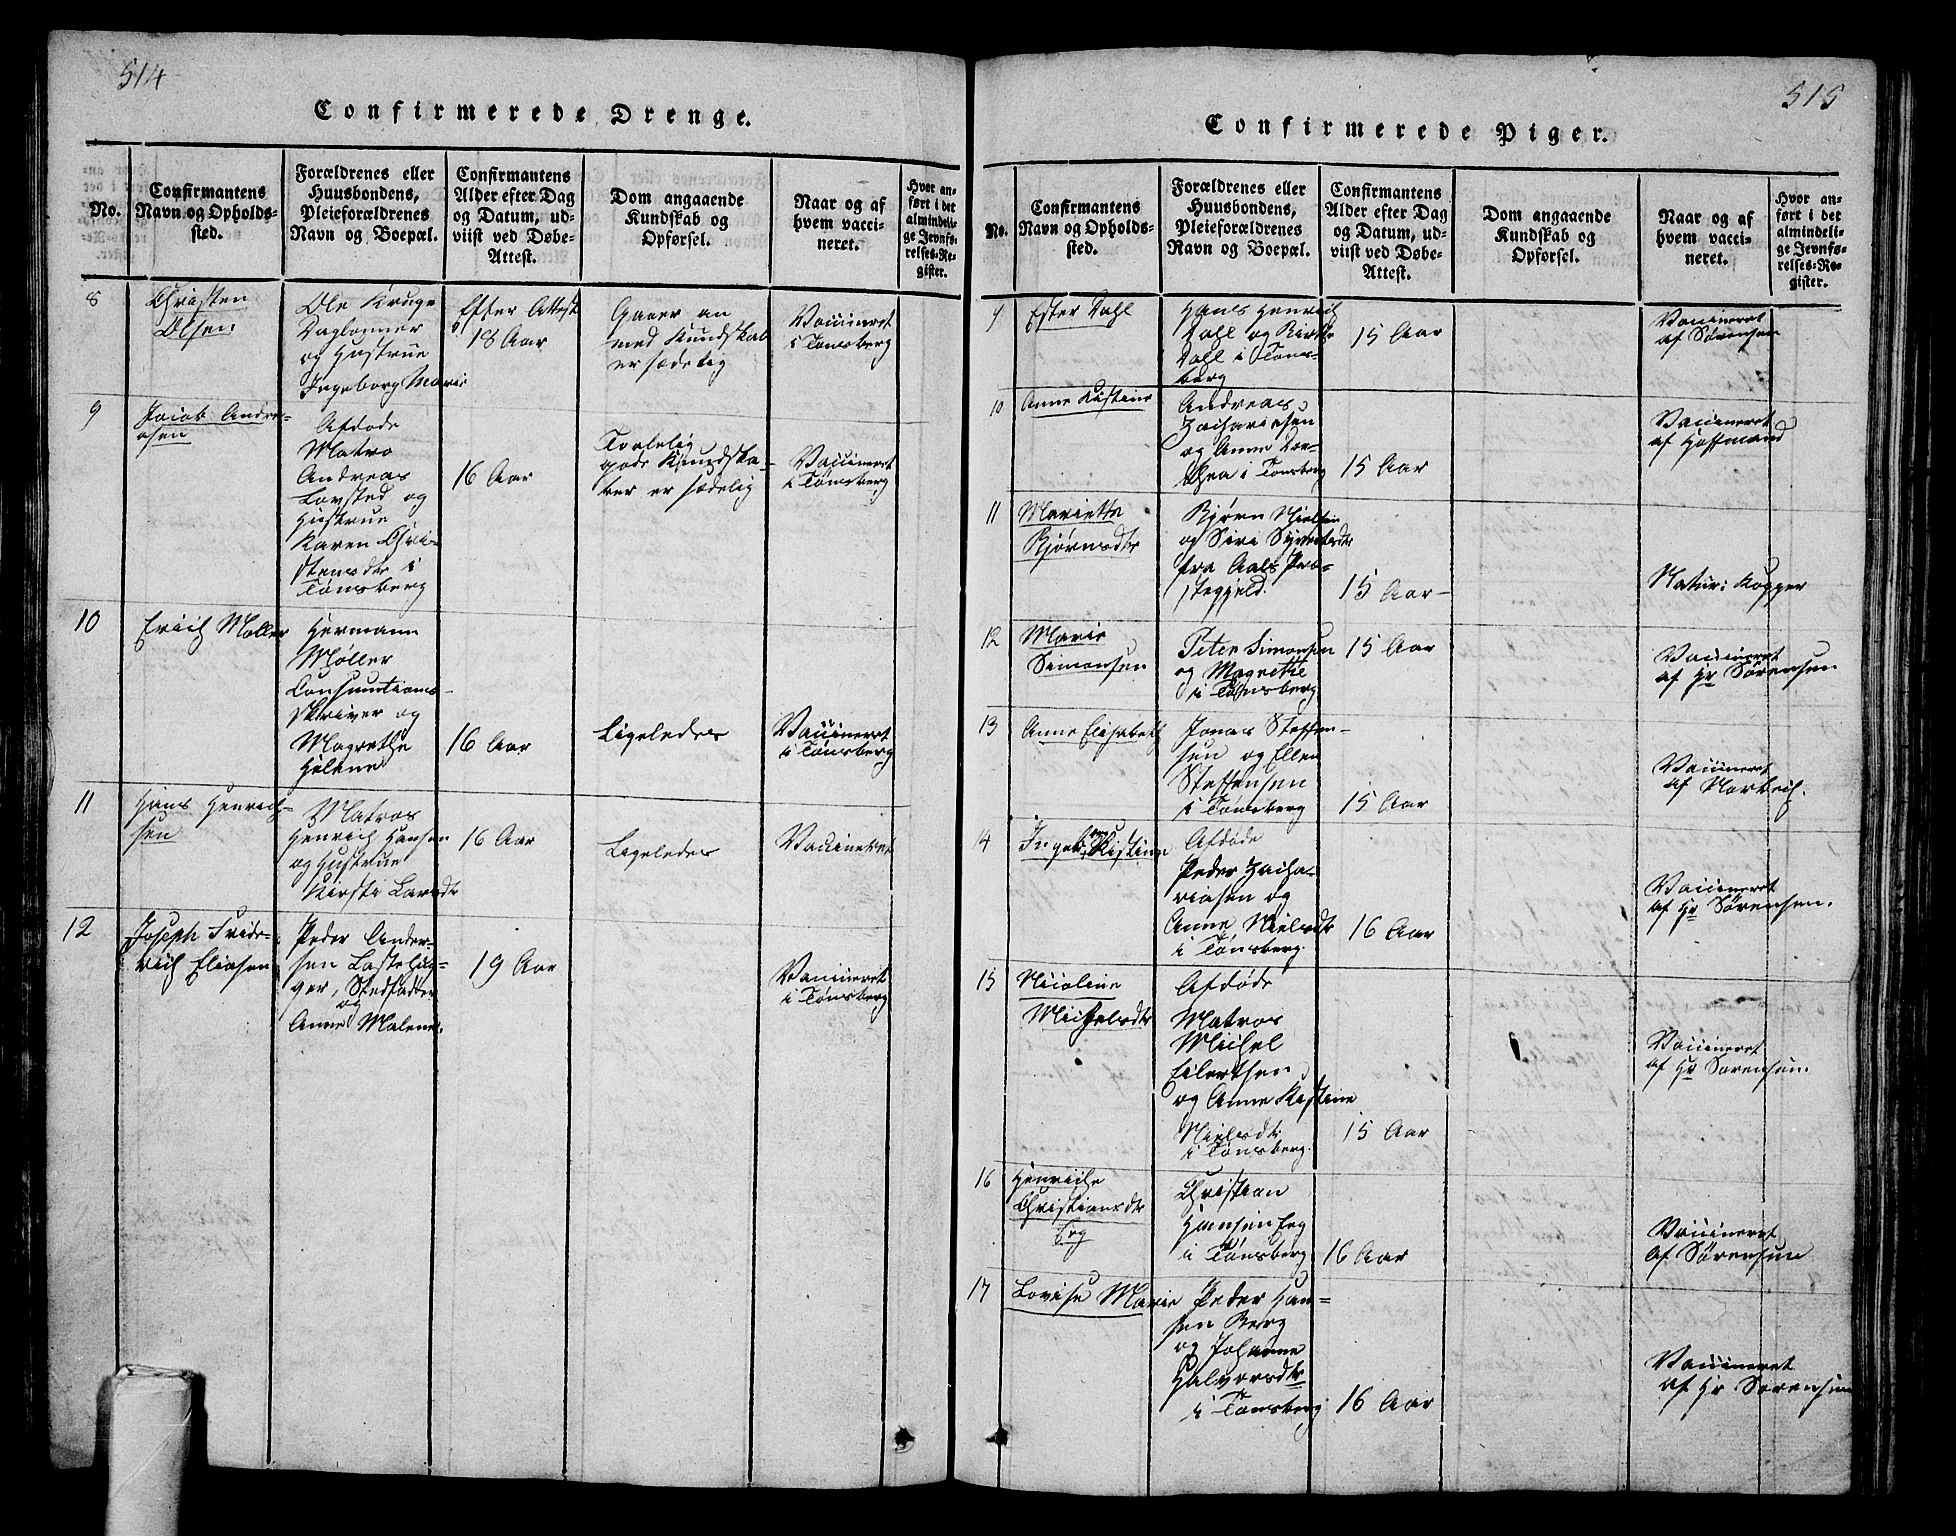 514
Confirmerede Drenge.
No.
Confirmantens
Navn og Opholds-
sted.
Forældrenes eller
Huusbondens,
Pleieforældrenes
Navn og Boepæl.
Confirmantens
Alder efter Dag
og Datum, ud-
viist ved Døbe-
Attest.
Dom angaaende
Kundskab og
Opførsel.
Naar og af
hvem vacci-
neret.
Hvor an-
ført i det
almindeli-
ge Jevnfø-
relses-Re-
gister.
8
Christen
Olsen
Ole Kruge
Daglønner
og Hustrue
Ingeborg Marie
Efter Attest
18 Aar
Gaaer an
med Kundskab
er sædelig
Vaccineret
i Tønsberg
9
Jacob Andre-
asen
Afdøde
Matro
Andreas
Lovsted og
Hustrue
Karen Chri-
stensdtr i
Tønsberg
16 Aar
Taalelig
gode Kundska-
ber er sædelig
Vaccineret
i Tønsberg
10
Erich Møller
Hermann
Møller
Consumtions-
skriver og
Magrethe
Helene
16 Aar
Ligeledes
Vaccineret
i Tønsberg
11
Hans Henrich-
sen
Matros
Henrich Hansen
og Hustrue
Kirsti Larsdtr
16 Aar
Ligeledes
Vaccineret
12
Joseph Fride-
rich Eliasen
Peder Ander-
sen
Stedfader
og
Anne Malene.
19 Aar
Vaccineret
i Tønsberg
515
Confirmerede Piger.
No.
Confirmantens
Navn og Opholds-
sted.
Forældrenes eller
Huusbondens,
Pleieforældrenes
Navn og Boepæl.
Confirmantens
Alder efter Dag
og Datum, ud-
viist ved Døbe-
Attest.
Dom angaaende
Kundskab og
Opførsel.
Naar og af
hvem vacci-
neret.
Hvor an-
ført i det
almindeli-
ge Jevnfø-
relses-Re-
gister.
9
Ester Dahl
Hans Henrich
Dall og Birthe
Dall i Tøns-
berg
15 Aar
Vaccineret
af Sørensen
10
Anne Kistine
Andreas
Zachariesen
og Anne Dor-
thea i Tønsberg
15 Aar
Vaccineret
af Hoffmand
11
Mariette
Bjørnsdtr
Bjørn Nielsen
og Siri Syvertsdtr
fra Aals Præ-
stegjeld.
15 Aar
Natur: Kopper
12
Marie
Simonsen
Peter Simonsen
og Magrethe
i Tønsberg
15 Aar
Vaccineret
af Hr Sørensen
13
Anne Elisabeth
Jonas Steffen-
sen og Ellen
Steffensen
i Tønsberg
15 Aar
Vaccineret
af Norbech.
14
Ingeb: Kistine
Afdøde
Peder Zacha-
riasen og
Anne Nielsdtr
i Tønsberg.
16 Aar
Vaccineret
af Hr Sørensen.
15
Nicoline
Michelsdtr
Afdøde
Matros
Michel
Eilertsen
og Anne Kistine
Nielsdtr
i Tønsberg.
15 Aar
Vaccineret
af Hr Sørensen.
16
Henriche
Christiansdtr
Eeg
Christian
Hansen Eeg
i Tønsberg
16 Aar
Vaccineret
af Sørensen
17
Lovise Marie
Peder Han-
sen Berg
og Johanne
Halvorsdtr
i Tønsberg
16 Aar
Vaccineret
af Hr Sørensen